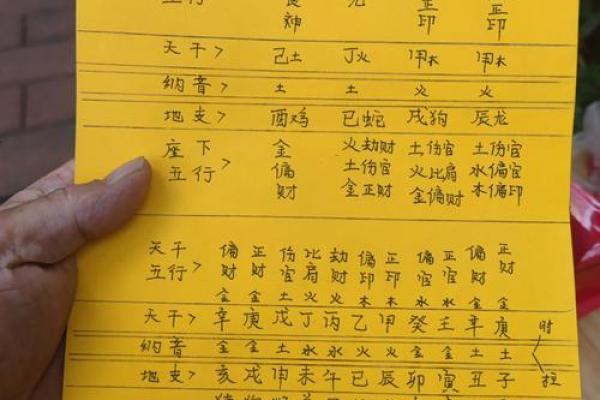 五行 食 元 正 正
神 印 印
天干> 己土 丁火 甲木 甲木
纳音> 土 土 火 火
地支> 酉鸡 巳蛇 戌狗 辰龙
座下 金 火劫财 土伤官 土伤官
五行> 偏 土伤官 火比肩 水偏官
财 金正财 金偏财 木偏印
天干 偏 正 伤 比 劫 偏 正 偏 正 偏 正
五行> 财 财 官 肩 财 印 印 官 官 财 财
金 金 土 火 火 木 木 水 水 金 金
天干> 辛 庚 戊 丁 丙 乙 甲 癸 壬 辛 庚 时
纳音 金 金 土 水 水 火 火 金 金 土 土
地支> 亥 戌 申 未 午 巳 辰 卯 寅 丑 子